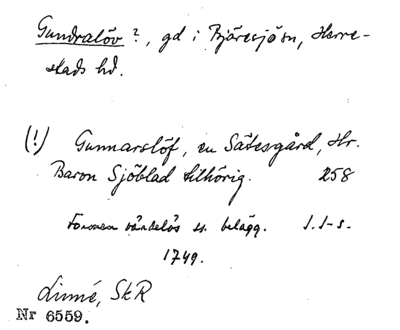 Gundralöv ?, gd i Bjäresjö sn, Herre-
stads hd.
(!) Gunnarslöf, en Sätesgård, Hr.
Baron Sjöblad tilhörig. 258
Formen värdelös ss. belägg. J. J-s.
1749.
Linné, SkR
Nr 6559.